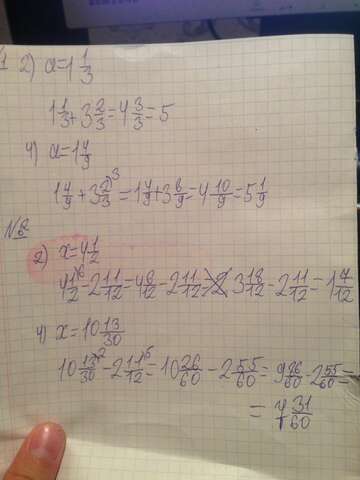 1 2) a=1 1/3
1 1/3 + 3 2/3 = 4 3/3 = 5
4) a=1 4/9
1 4/9 + 3 2/3 ³ = 1 4/9 + 3 6/9 = 4 10/9 = 5 1/9
№8
2) x=4 1/2
4 1/2 ⁶ - 2 11/12 = 4 6/12 - 2 11/12 = 3 18/12 - 2 11/12 = 1 7/12
4) x=10 13/30
10 13/30 ² - 2 11/12 ⁵ = 10 26/60 - 2 55/60 = 9 86/60 - 2 55/60 =
= 7 31/60